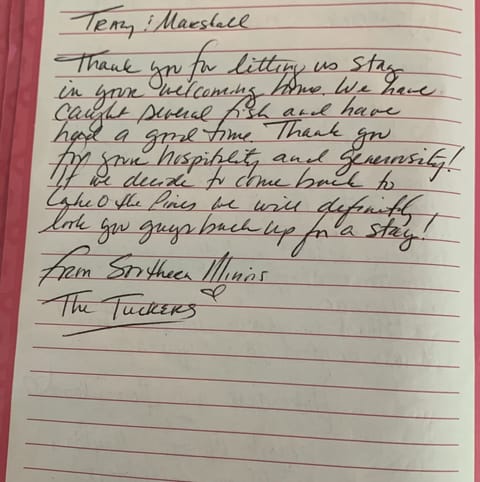 Terry & Marshall
Thank you for letting us stay
in your welcoming home. We have
caught several fish and have
had a good time. Thank you
for your hospitality and generosity!
If we decide to come back to
Lake O the Pines we will definitly
look you guys back up for a stay!
from Southern Illinois
The Tuckers